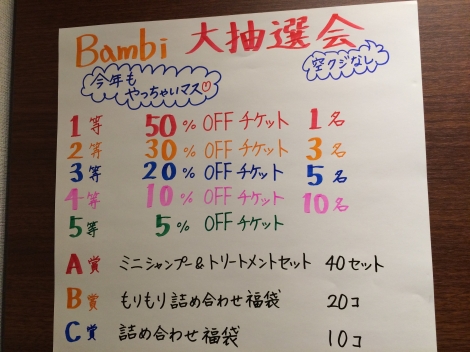 Bambi 大抽選会
今年も
やっちゃいマス♡
空クジなし
1等 50% OFF チケット 1名
2等 30% OFF チケット 3名
3等 20% OFF チケット 5名
4等 10% OFF チケット 10名
5等 5% OFF チケット
A賞 ミニシャンプー&トリートメントセット 40セット
B賞 もりもり詰め合わせ福袋 20コ
C賞 詰め合わせ福袋 10コ